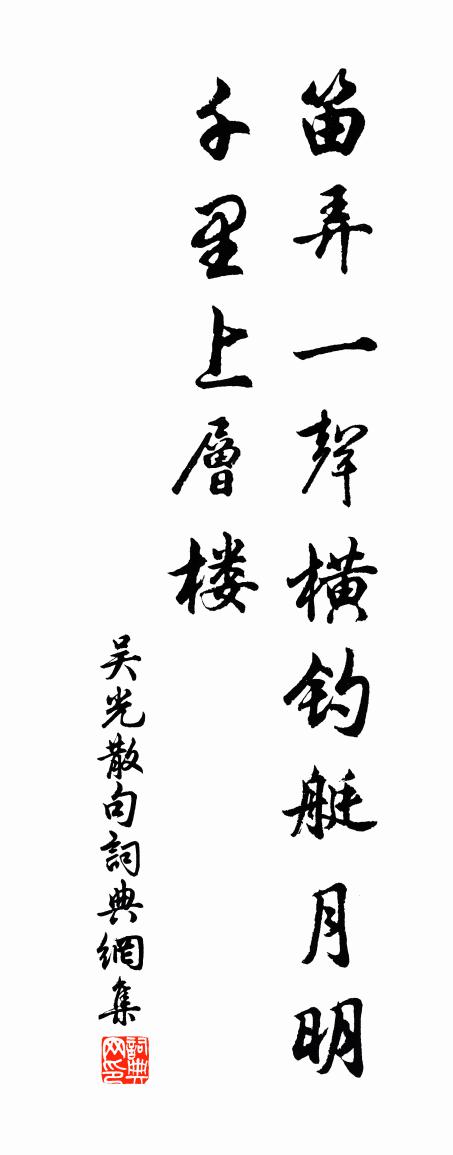 笛弄一聲橫钓艇月明
千里上層楼
吴光散句詞典網集
詞典网印